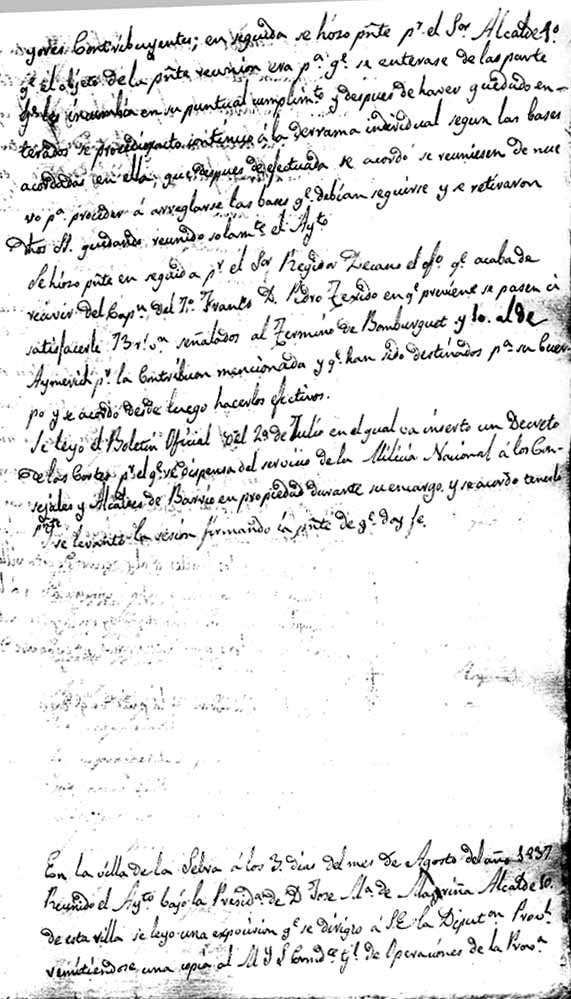 yores Contribuyentes; en seguida se hizo pñte pr. el Sor. Alcalde 1º.
qe. el objeto de la pñte reunion era pª. qe. se enterase de la parte
qe. les incumbia en su puntual cumplimto. y despues de haver quedado en-
terados se procediese acto continuo á la derrama individual segun las bases
acordadas en ella, que despues de efectuada se acordó se reuniesen de nue
vo pª. proceder á arreglarse las bases qe. debian seguirse y se retiraron
dhos SS. quedando reunido solamte. el Ayto.
Se hizo pñte en seguida pr. el Sor Regidor Decano el ofº. qe. acaba de
recivir del Capn. del 7º. Franco D. Pedro Texido en qe. previene se pasen á
satisfacerle 73 rs. vn. señalados al Termino de Bomburguet y 10. al de
Aymerich pr. la Contribucion mencionada y qe. han sido destinados pª. su Cuer-
po y se acordo desde luego hacerlos efectivos.
Se leyo el Boletin Oficial del 29 de Julio en el qual va inserto un Decreto
de las Cortes pr. el qe. se dispensa del servicio de la Milicia Nacional á los Con-
sejales y Alcaldes de Barrio en propiedad durante su encargo, y se acordo tenerlo
pte.
se levantó la sesion firmando la pñte de qe. doy fe.
En la villa de la Selva á los 3. dias del mes de Agosto del año 1837
Reunido el Ayto. bajo la Presida. de Dn. Jose Mª. de Magriña Alcalde 1º.
de esta villa se leyo una exposicion qe. se dirigio á S.E. la Diputon. Provl.
remitiendose una copia al M Y S Comdte. Gl. de Operaciones de la Provª.